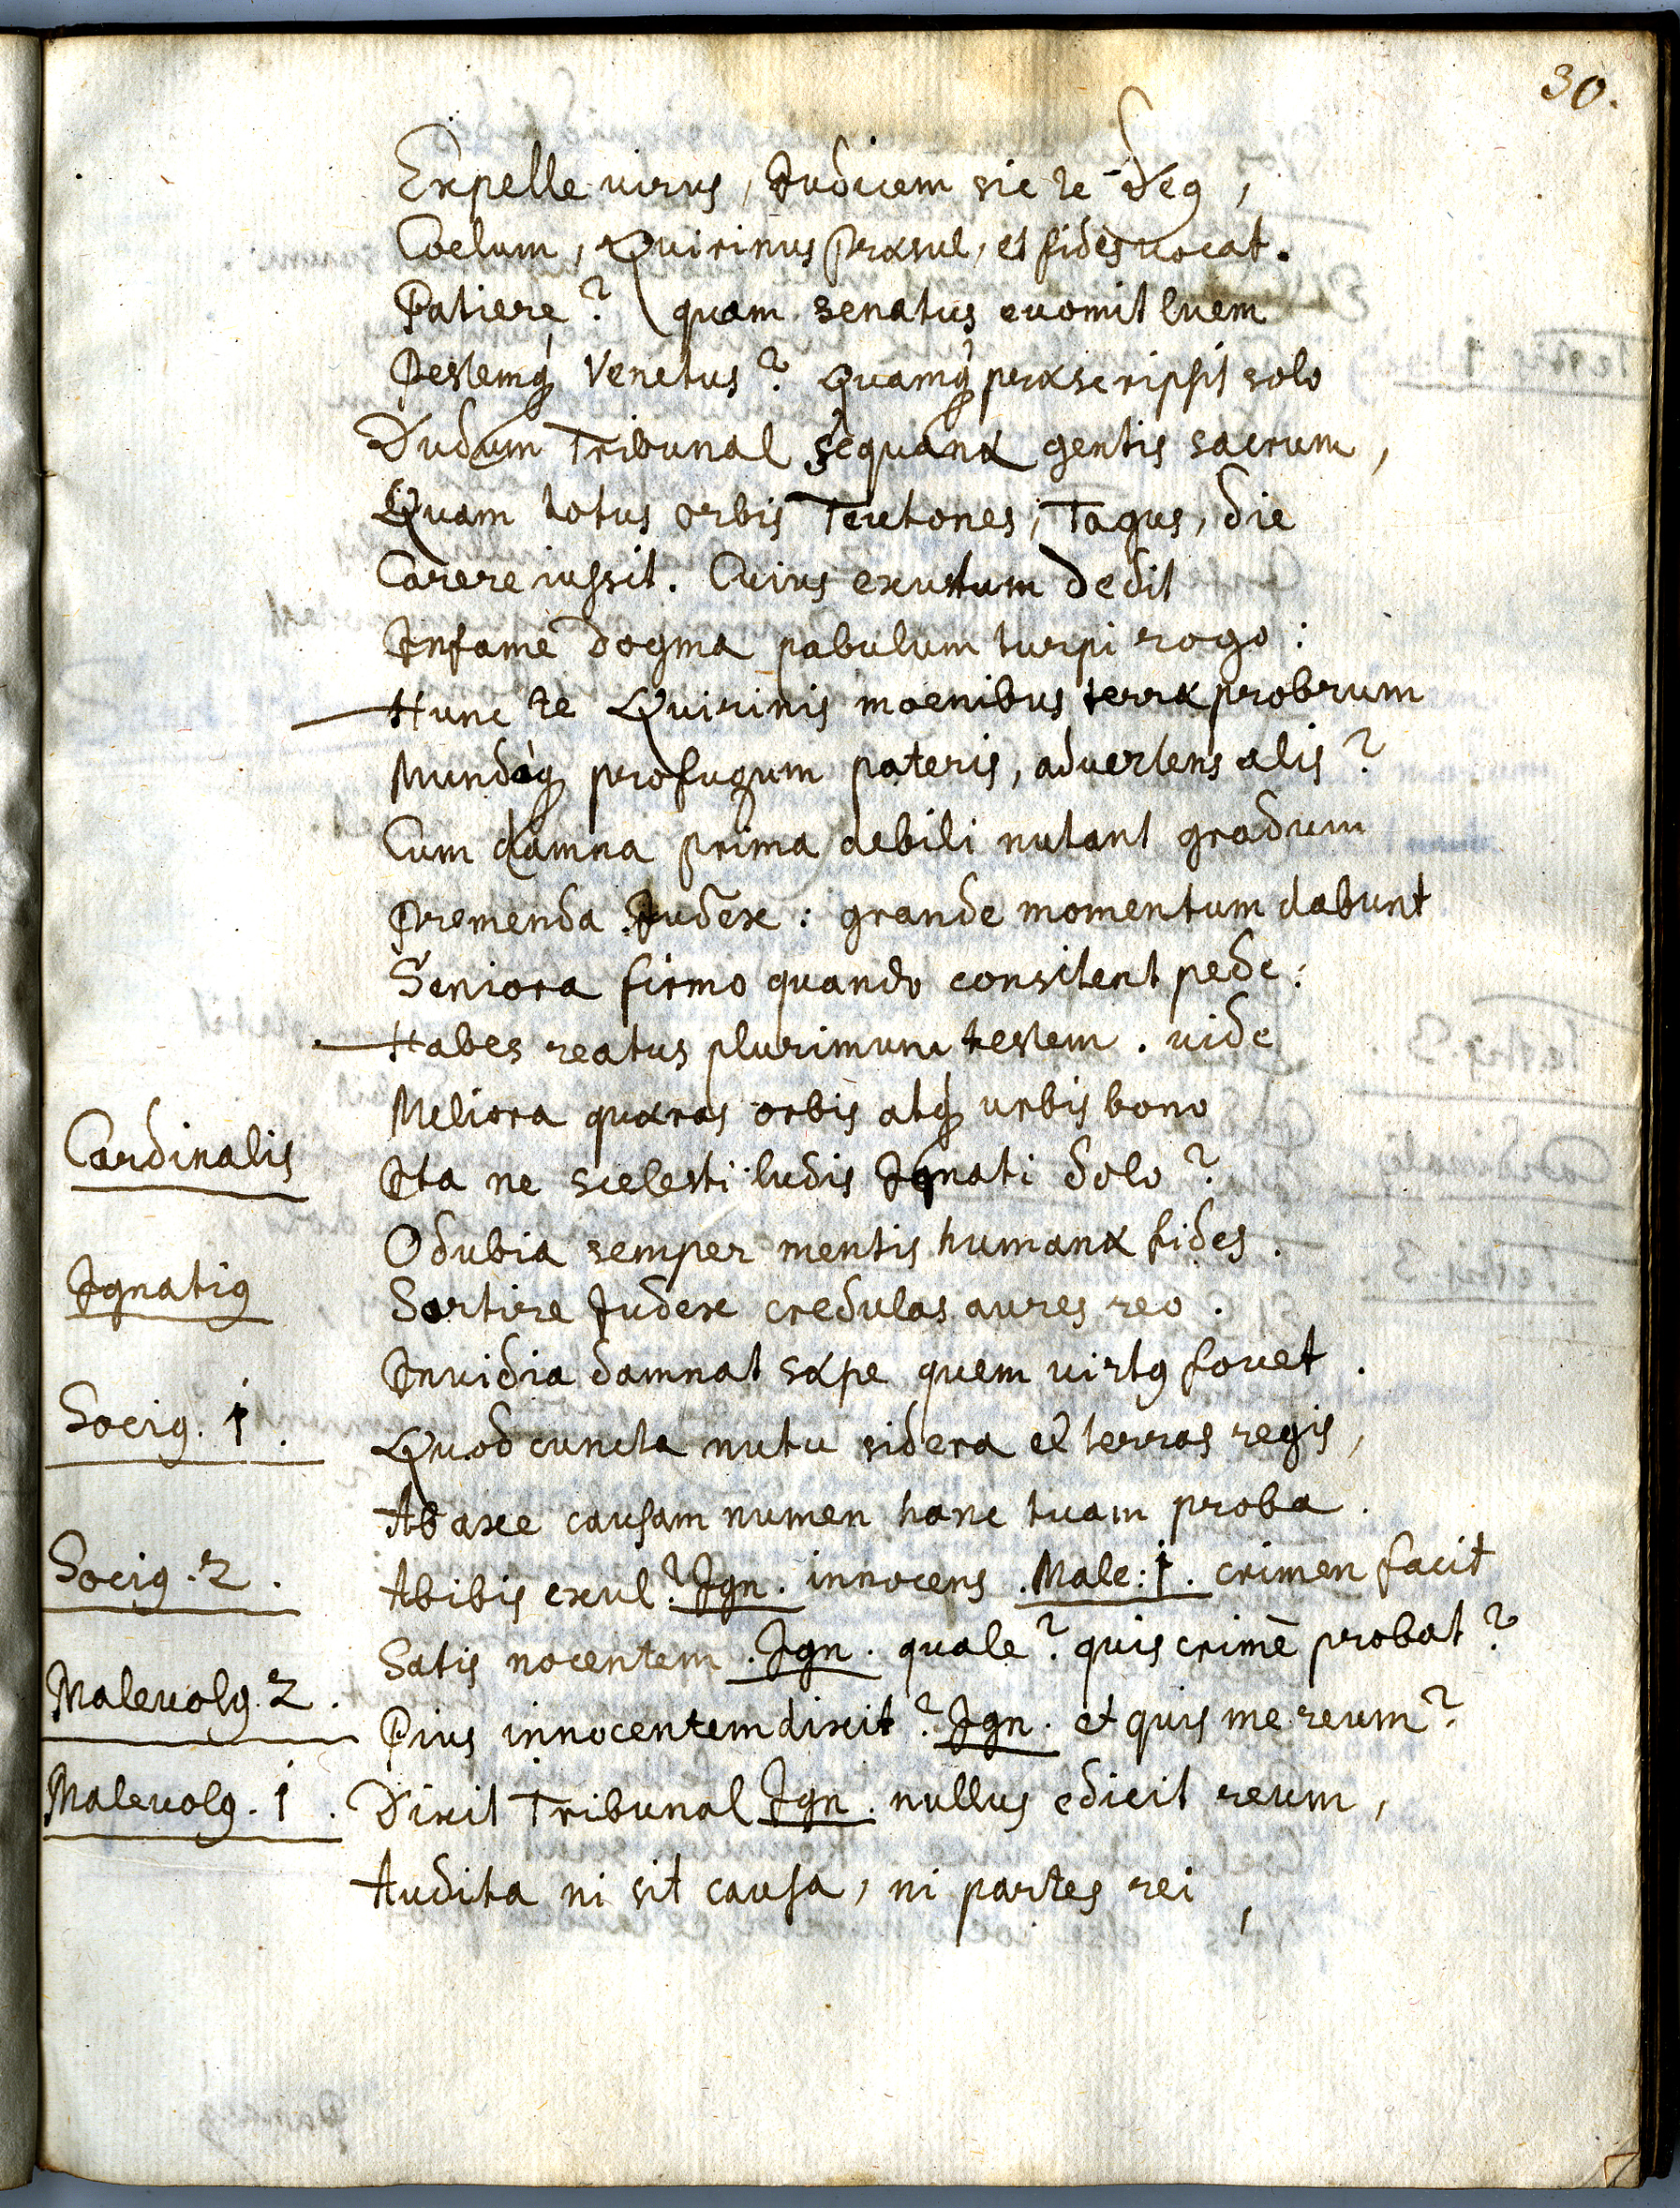 30.
Expelle virus, Judicem sic te Deq,
Coelum, Quirinus præsul, et fides vocat.
Patiere? quam senatus evomit luem
Pestemq Venetus? Quamq præscripsit solo
Dudum Tribunal sequanæ gentis sacrum,
Quam totus orbis Teutones, Tagus, die
Carere iussit. Cuius exustum dedit
Infame dogma pabulum turpi rogo:
Hunc te Quirinis moenibus terræ probrum
Mundiq profugum pateris, advertens alis?
Cum damna prima debili nutant gradum
Premenda Judex: grande momentum dabunt
Seniora firmo quando consitent pede:
Habes reatus plurimum testem. vide
Meliora quæras orbis atq urbis bono
Cardinalis Ita ne scelesti ludis Ignati dolo?
O dubia semper mentis humanæ fides.
Ignatiq Sortire Judex credulas aures reo.
Invidia damnat sæpe quem virtq fovet.
Sociq. 1. Quod cuncta nutu sidera et terras regis,
Ab axe causam numen hanc tuam proba.
Sociq. 2. Abibis exul? Ign. innocens. Male: 1. crimen facit
Satis nocentem. Ign. quale? quis crimē probat?
Malevolq. 2. Pius innocentem dixit? Ign. et quis me reum?
Malevolq. 1. Dixit Tribunal Ign. nullus edicit reum,
Audita ni sit causa, ni partes rei,